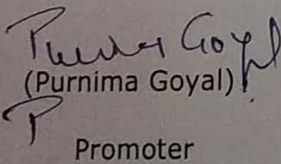 Purnima Goyal
(Purnima Goyal)
P
Promoter